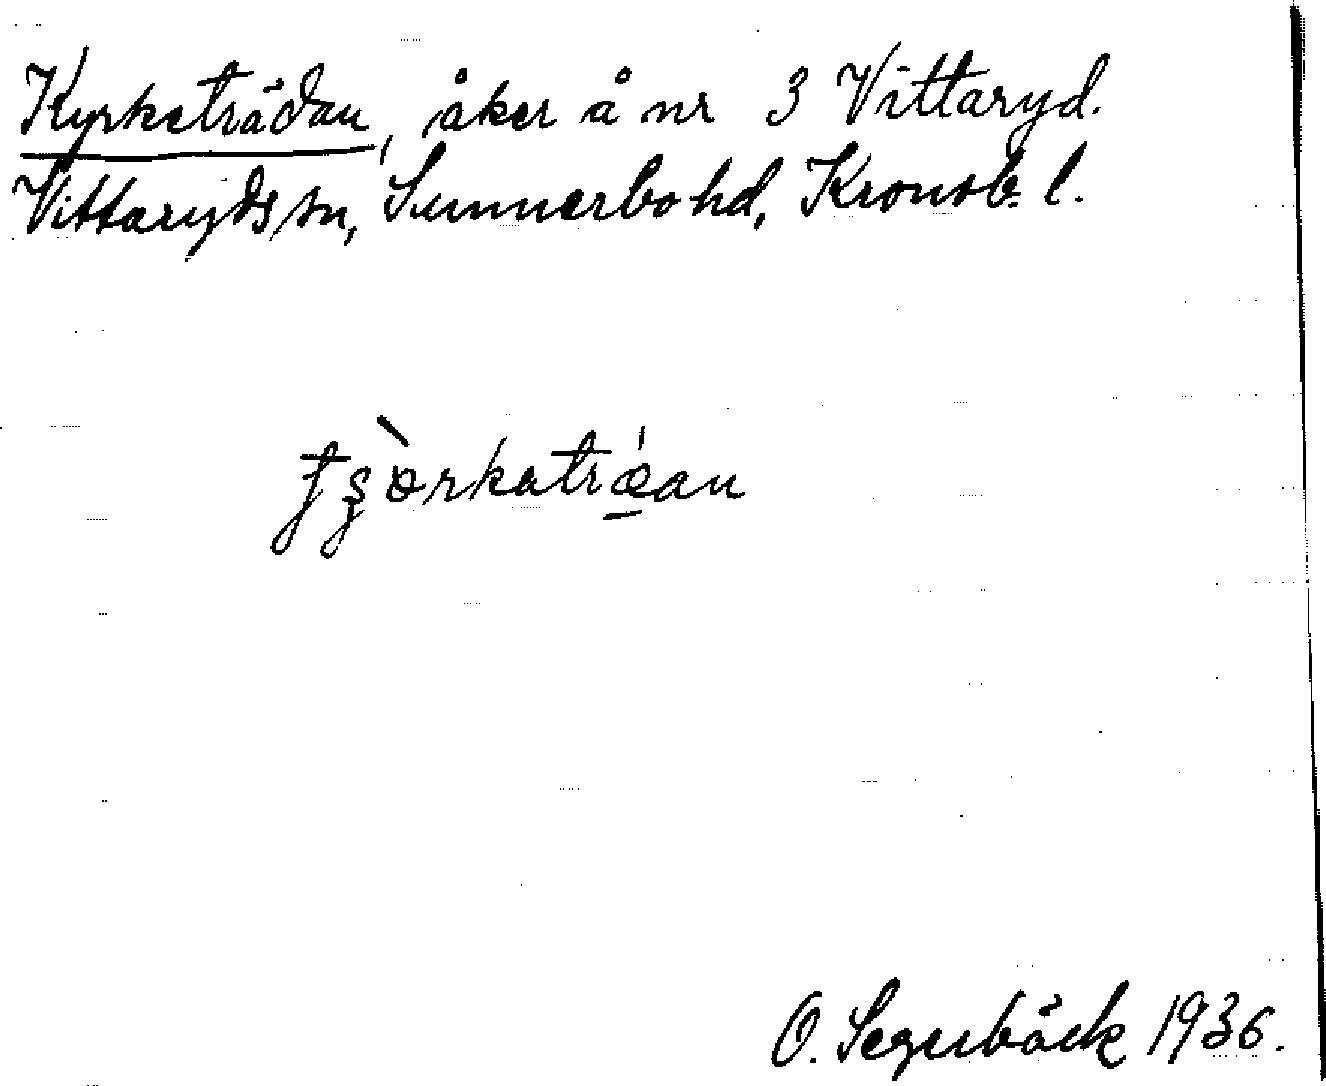 Kyrketrädan, åker å nr 3 Vittaryd.
Vittaryds sn, Sunnerbo hd, Kronob. l.
tʂòrkatrǽan
O. Segerbäck 1936.